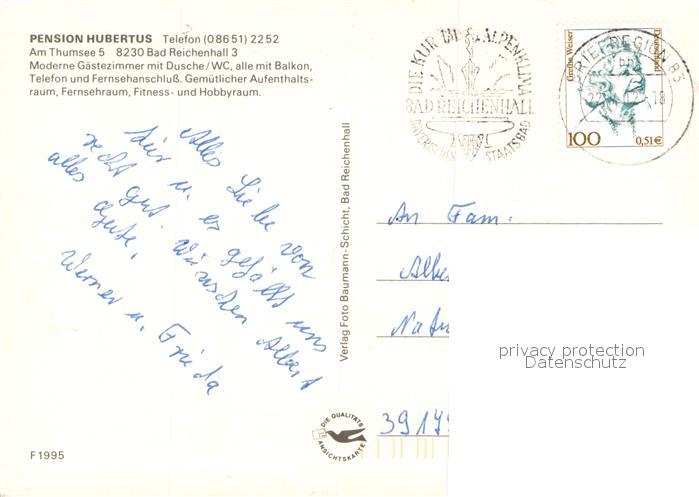 PENSION HUBERTUS Telefon (08651) 2252
Am Thumsee 5 8230 Bad Reichenhall 3
Moderne Gästezimmer mit Dusche/WC, alle mit Balkon,
Telefon und Fernsehanschluß. Gemütlicher Aufenthalts-
raum, Fernsehraum, Fitness- und Hobbyraum.
Alles Liebe von
hier u. es gefällt uns
recht gut wünschen Albert
alles Gute.
Werner u. Frieda
F1995
Verlag Foto Baumann-Schicht, Bad Reichenhall
DIE QUALITÄTS
ANSICHTSKARTE
DIE KUR IM ALPENKLIMA
BAD REICHENHALL
BAYERISCHES STAATSBAD
BRIEFREGION 83
Grethe Weiser
Deutschland
100 0,51€
An Fam.
Albe
Natu
3917
privacy protection
Datenschutz